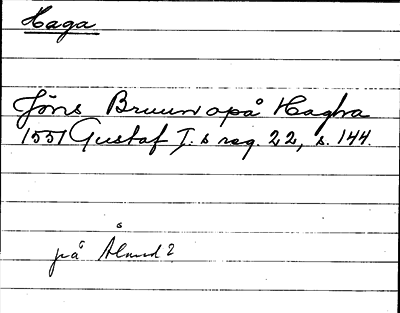 Haga
Jöns Bruun opå Haghra
1551 Gustaf I.s reg. 22, s. 144.
på Åland?